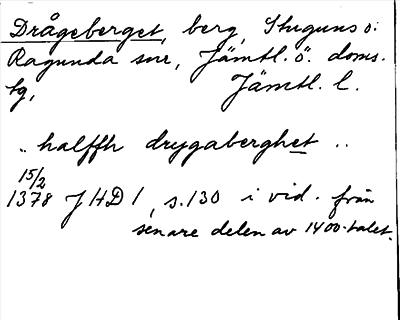 Drågeberget, berg, Stuguns o.
Ragunda snr, Jämtl. ö. doms.
tg, Jämtl. l.
.. halffh drygaberghet ..
15/2
1378 JHD 1, s. 130 i vid. från
senare delen av 1400-talet.